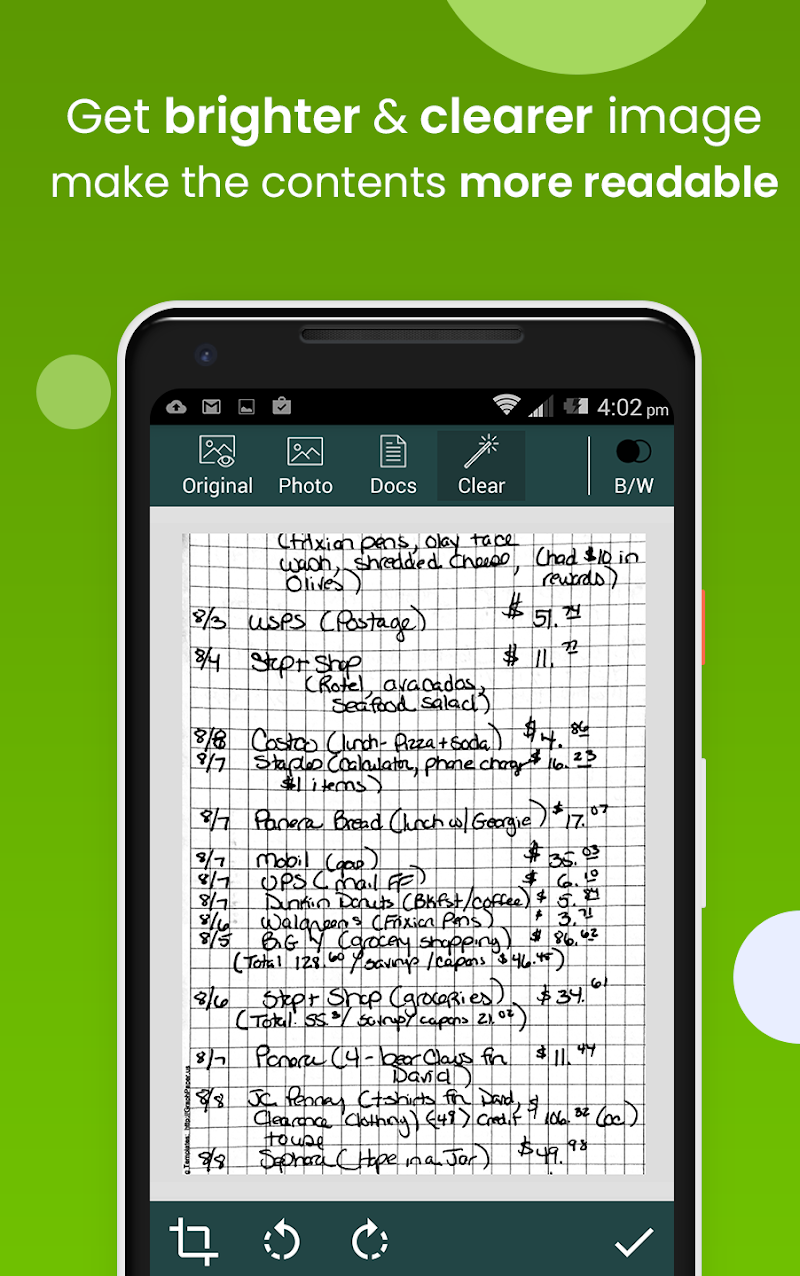 Get brighter & clearer image
make the contents more readable
4:02 pm
Original Photo Docs Clear B/W
(frixion pens, olay face
wash, shredded cheese, (had $10 in
Olives) rewards)
8/3 USPS (Postage) $ 51.74
8/4 Stop + Shop $ 11.77
(Rotel, avacados,
seafood salad)
8/8 Costco (lunch - Pizza + Soda) $ 4.86
8/7 Staples (calculator, phone charg $ 16.23
$1 items)
8/7 Panera Bread (lunch w/ Georgie) $ 17.07
8/7 Mobil (gas) $ 35.03
8/7 UPS (mail FF) $ 6.10
8/7 Dunkin Donuts (Bkfst/coffee) $ 5.
8/6 Walgreens (Frixion Pens) $ 3.71
8/5 BiG Y (grocery shopping) $ 86.62
(Total 128.60 / savings /capons $46.45)
8/6 Stop + Shop (groceries) $ 34.61
(Total 55. / savings/ capons 21.02)
8/7 Panera (4 - bear Claws for $ 11.44
David)
8/8 JC Penney (t-shirts for David, $
Clearance Clothing) (-49) credit 106.32 (cc)
to use
8/8 Sephora (Hope in a Jar) $49.98
e Templates http://GraphPaper.us